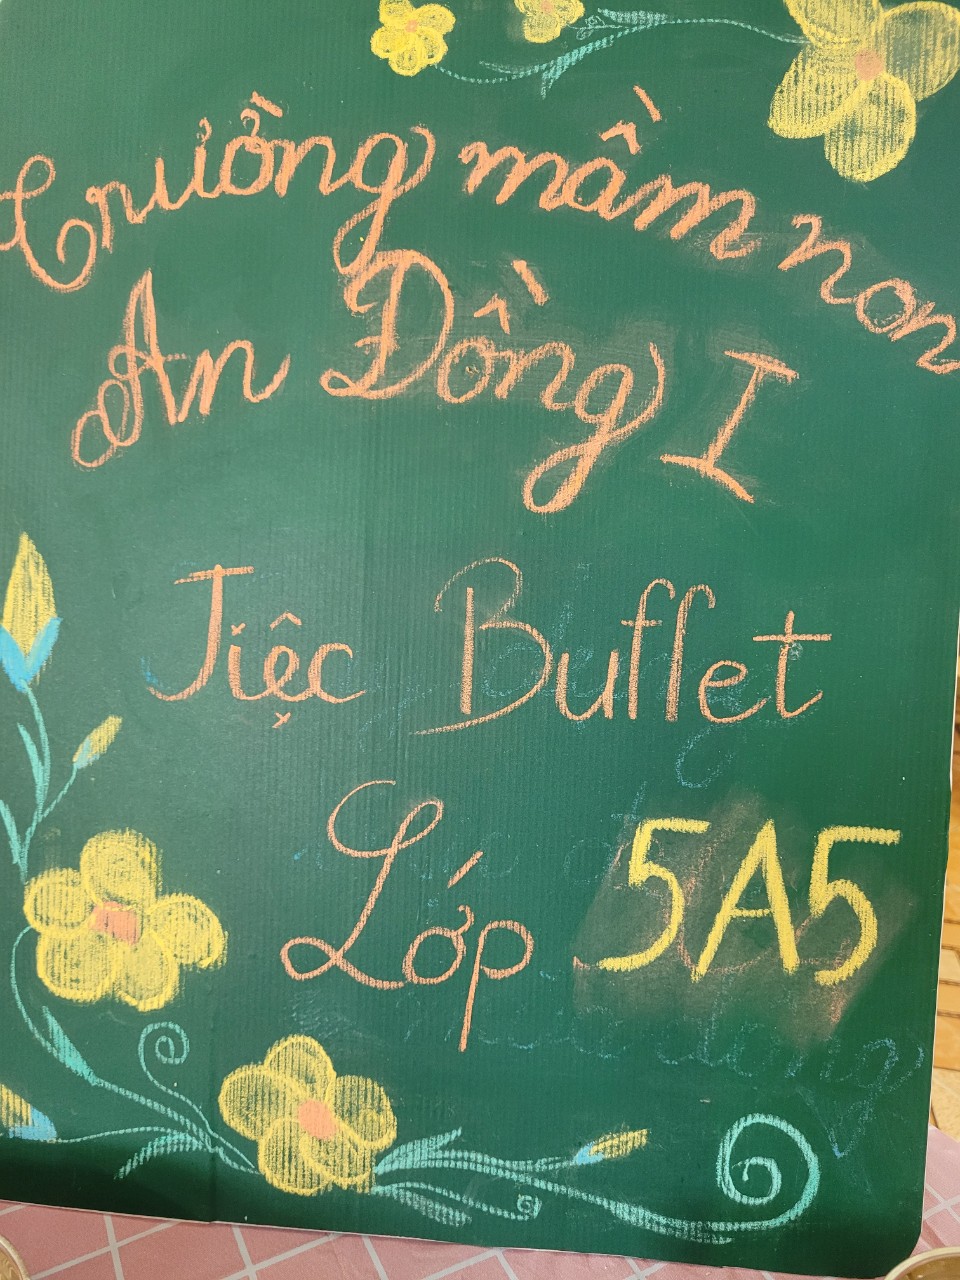 Trường mầm non
An Đồng I
Tiệc Buffet
Lớp 5A5